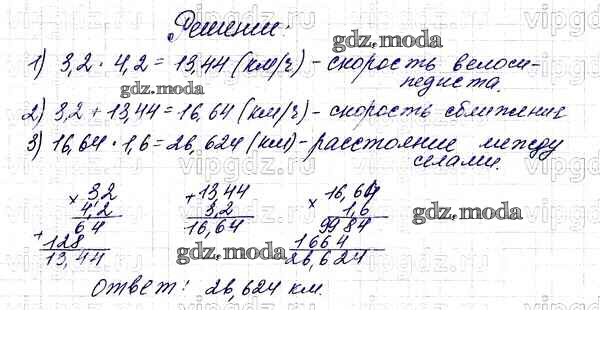 Решение:
1) 3,2 · 4,2 = 13,44 (км/ч) - скорость велоси-
педиста.
2) 3,2 + 13,44 = 16,64 (км/ч) - скорость сближения
3) 16,64 · 1,6 = 26,624 (км) - расстояние между
селами.
× 3,2
4,2
64
+ 128
13,44
+ 13,44
3,2
16,64
× 16,64
1,6
9984
1664
26,624
Ответ: 26,624 км.
gdz.moda
gdz.moda
gdz.moda
gdz.moda
gdz.moda
vipgdz.ru